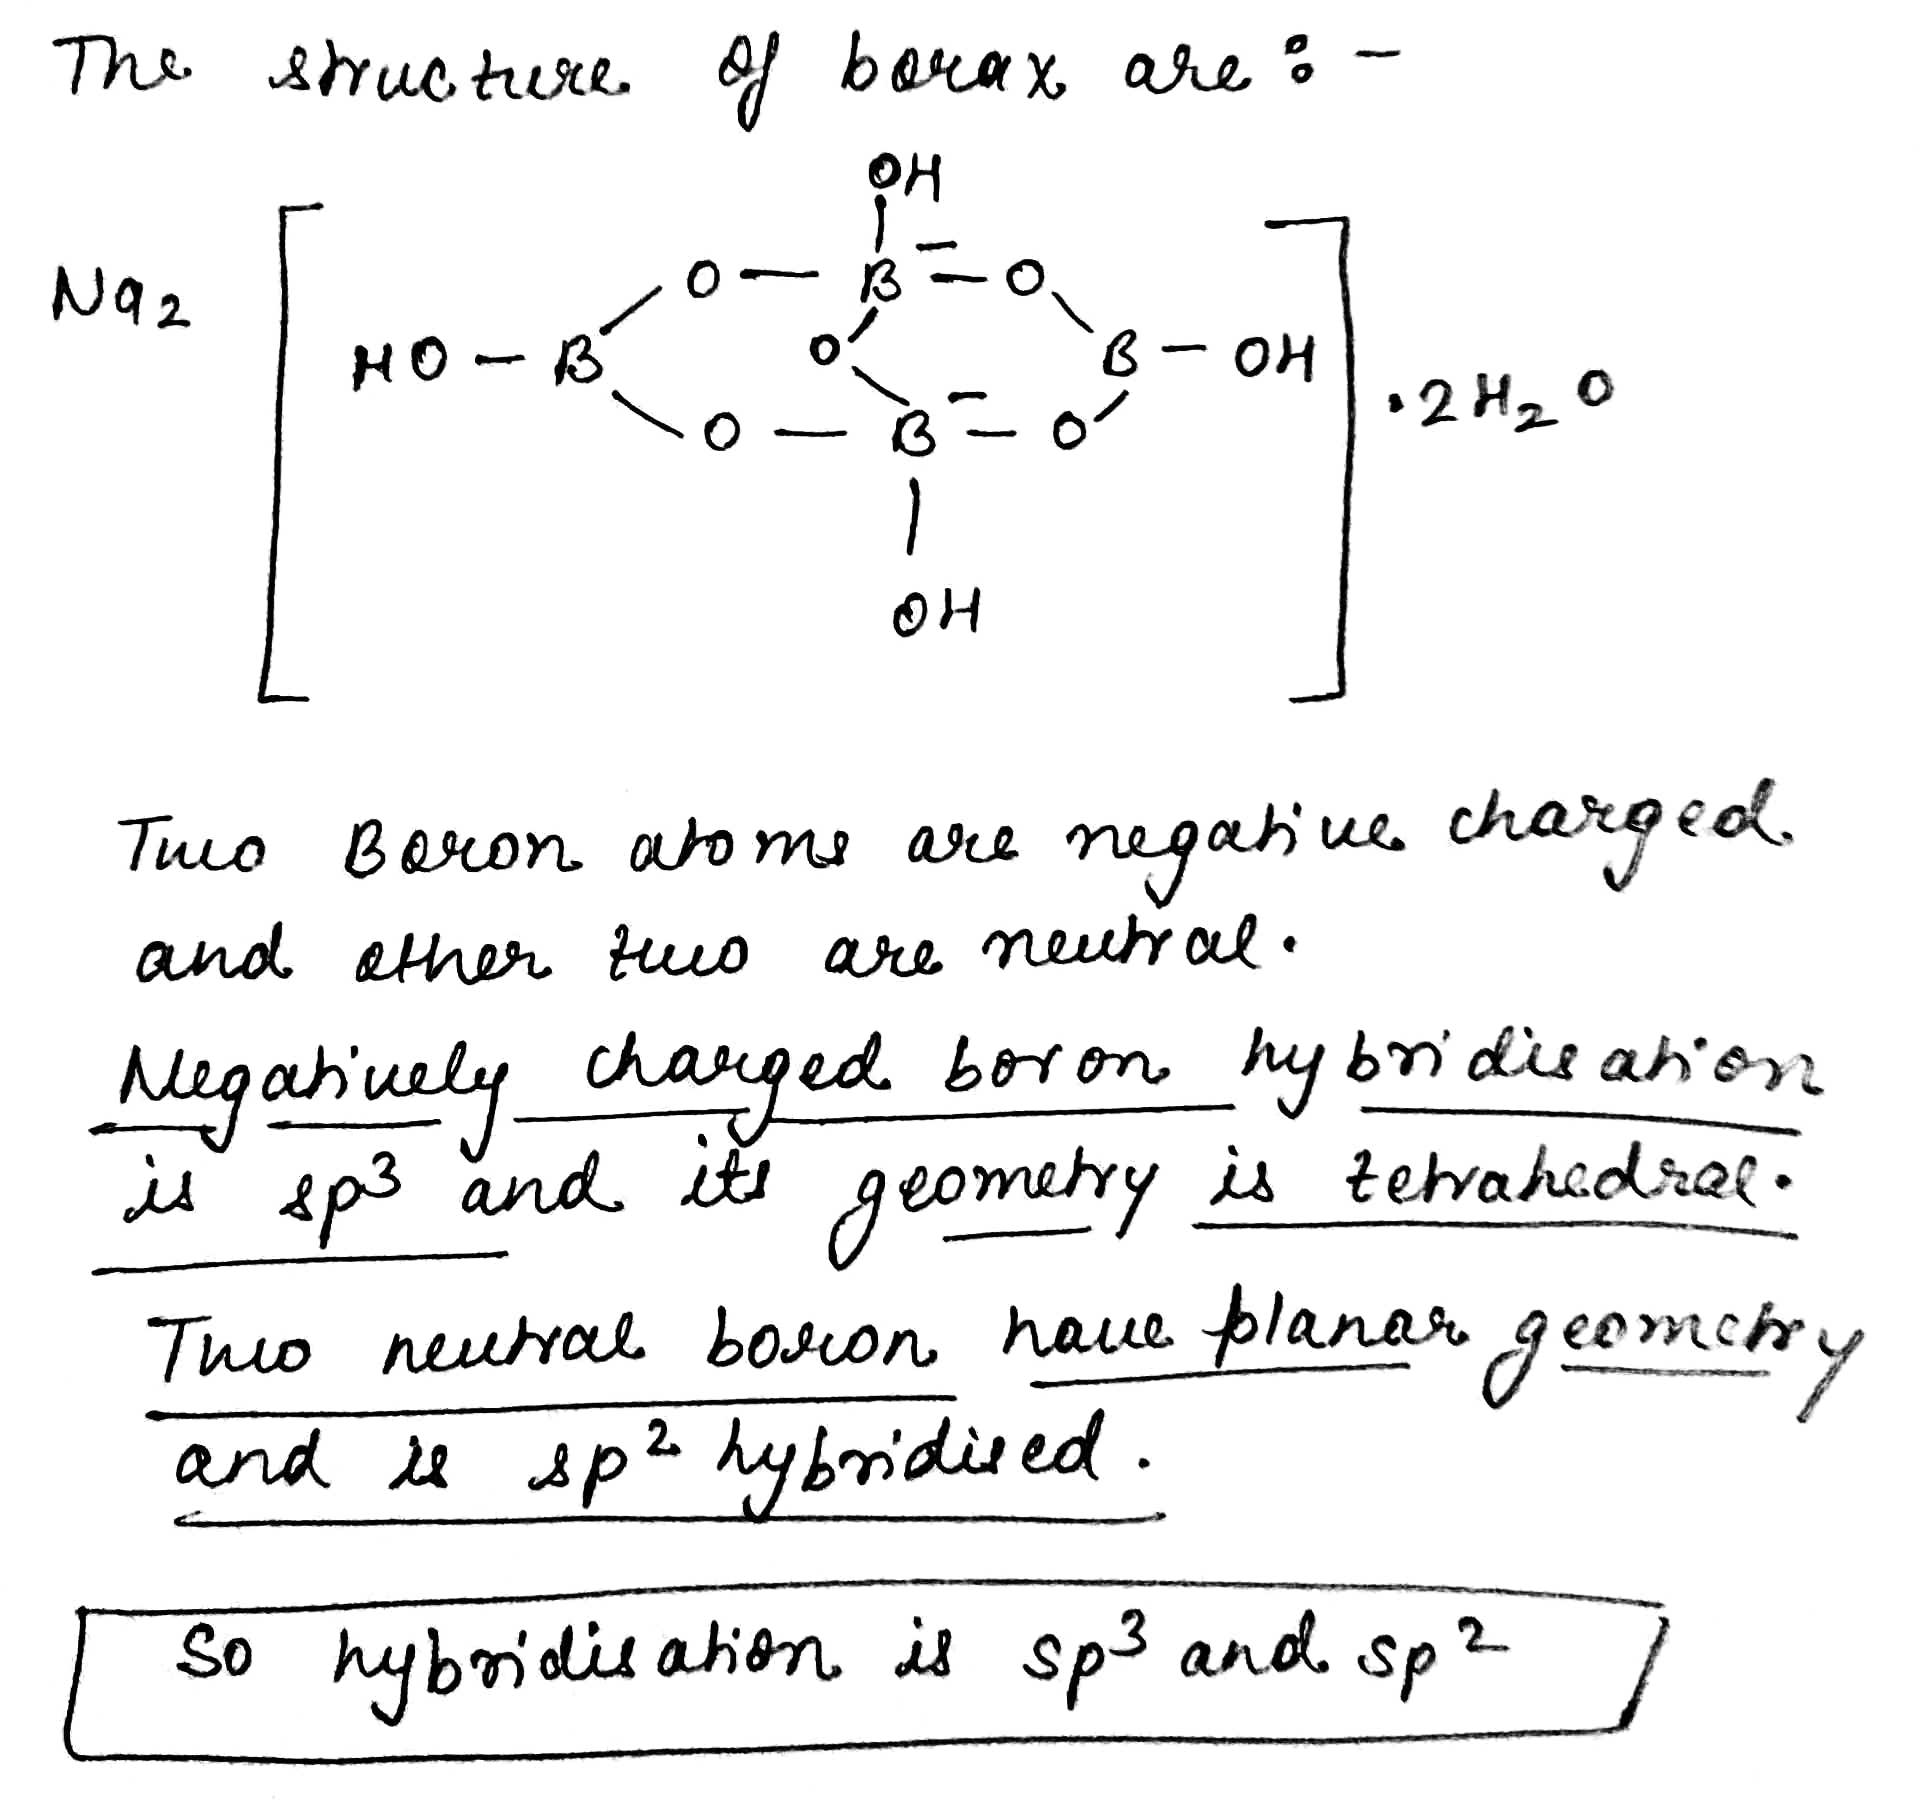 The structure of borax are :-
OH
Na2
O - B - O
HO - B O B - OH
.2H2O
O - B - O
OH
Two Boron atoms are negative charged
and other two are neutral.
Negatively charged boron hybridisation
is sp3 and its geometry is tetrahedral.
Two neutral boron have planar geometry
and is sp2 hybridised.
So hybridisation is sp3 and sp2